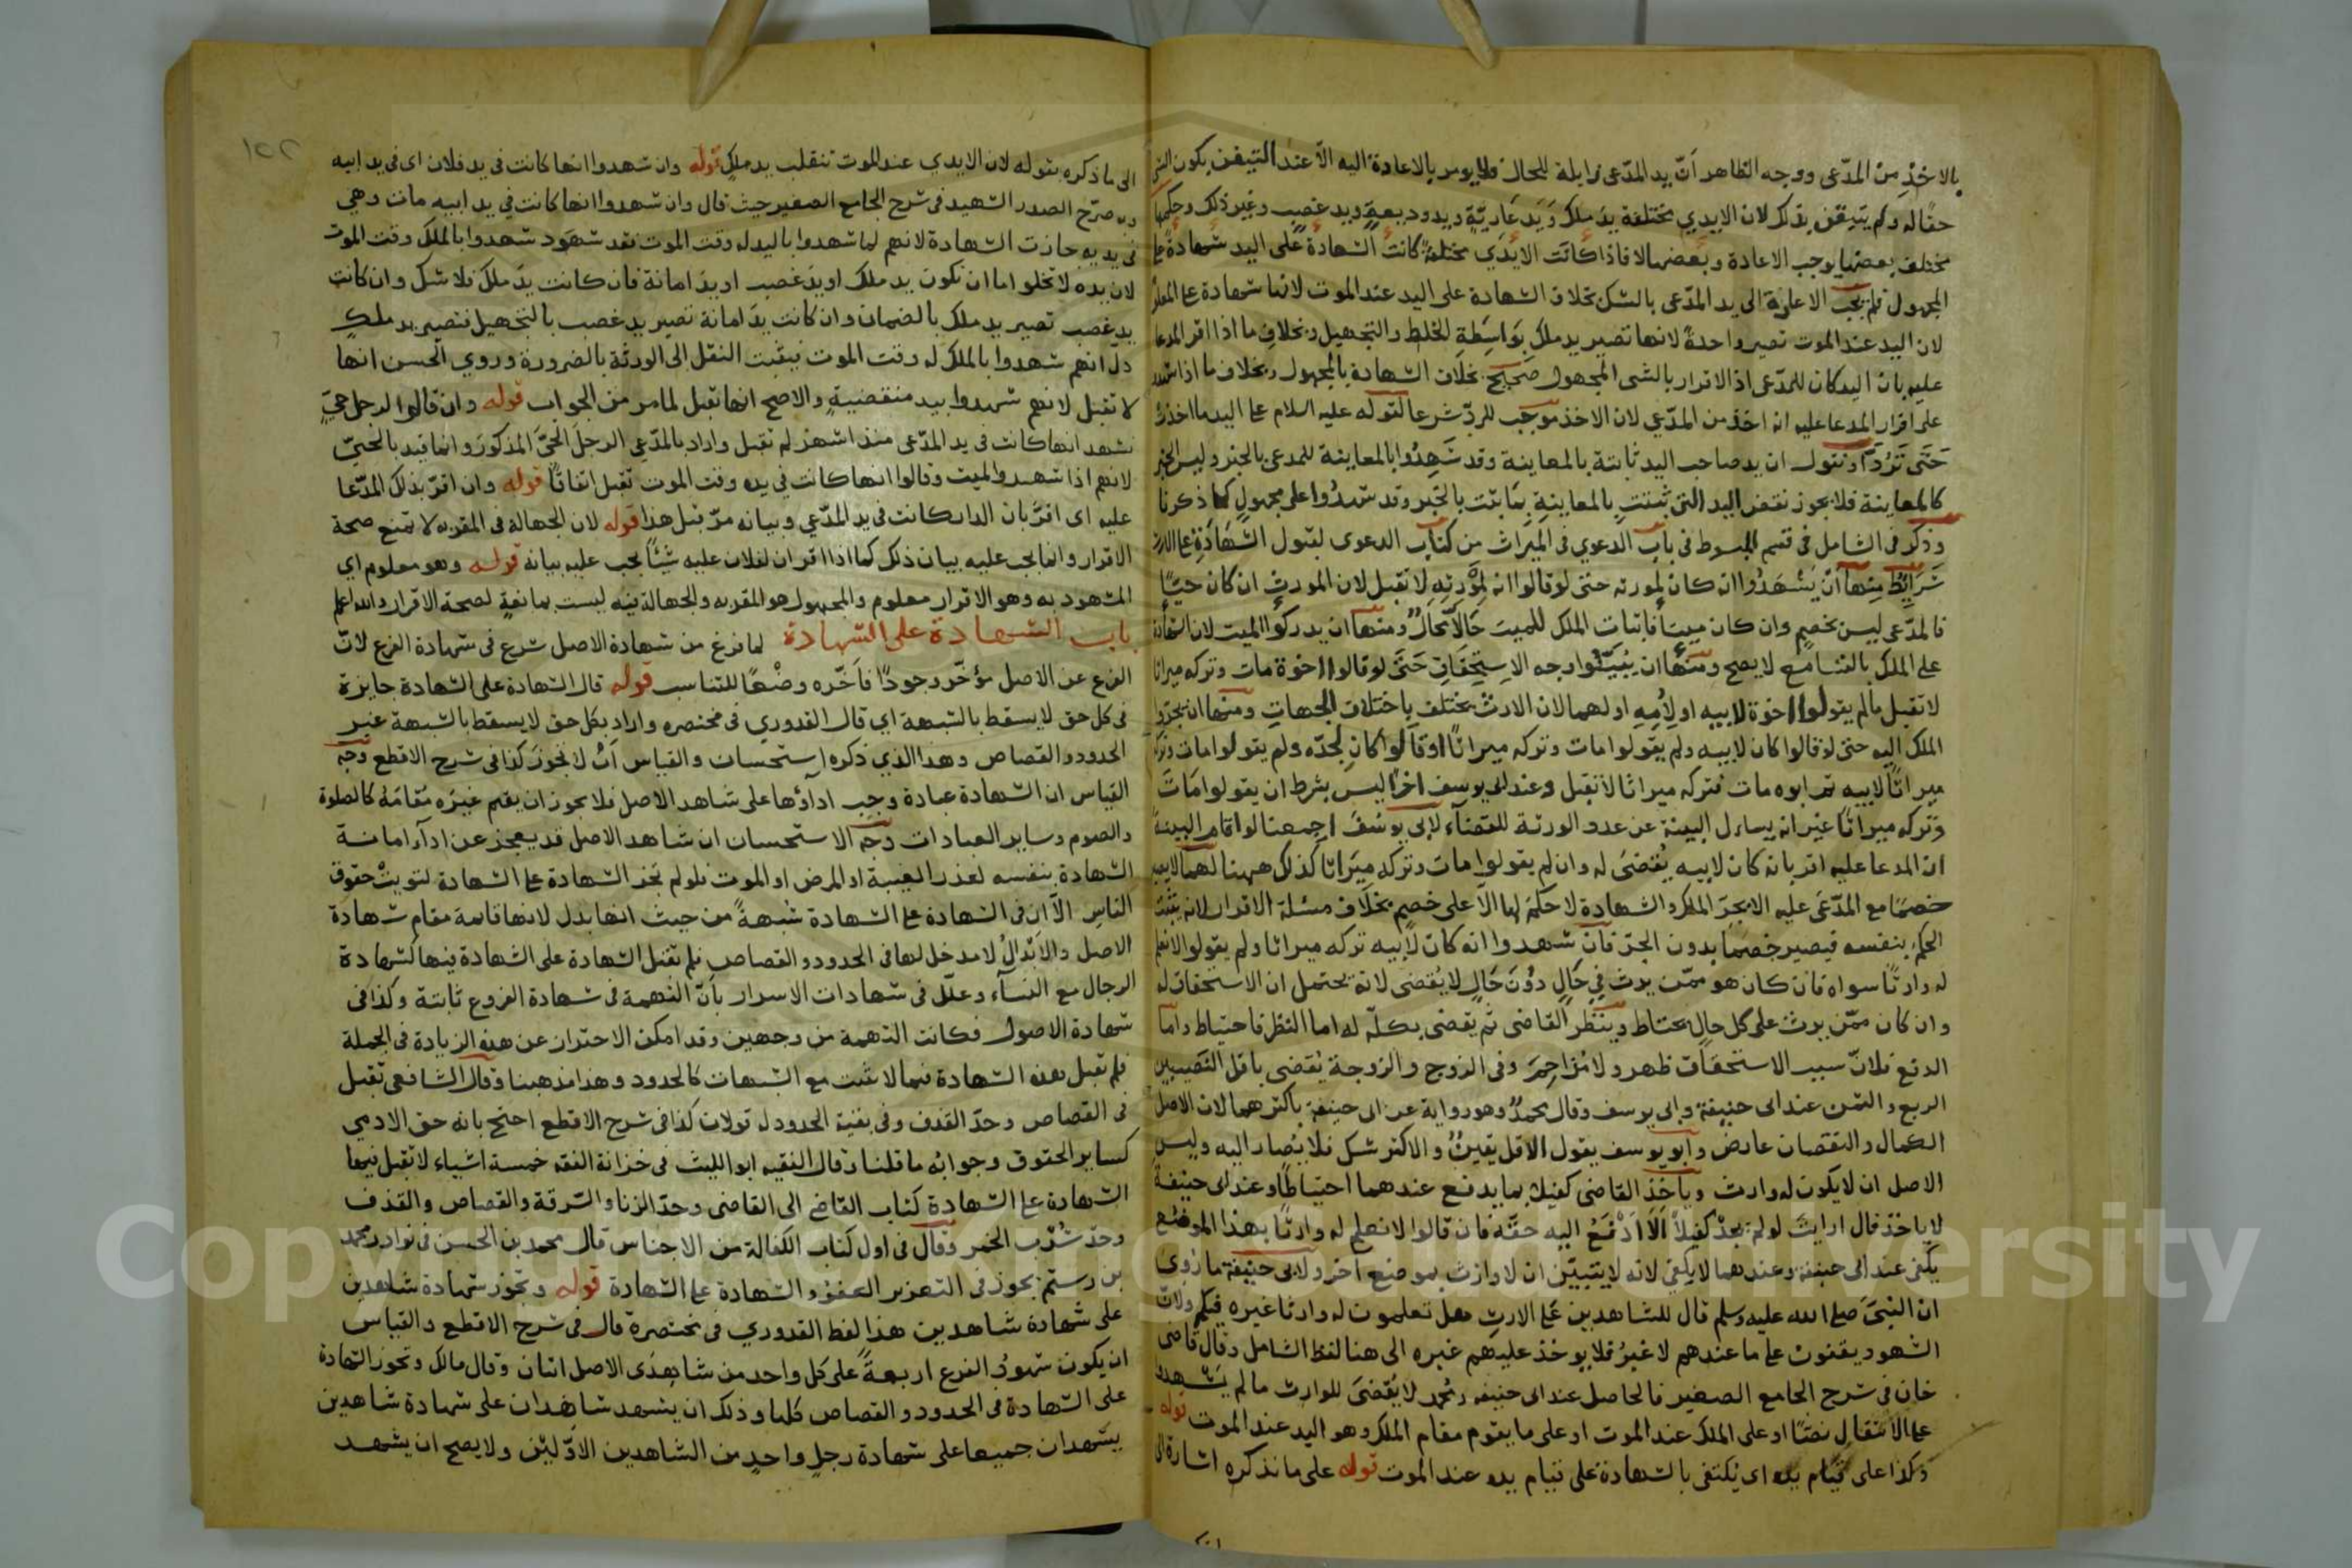 بالاخذ من المدّعى ووجه الظاهر أنّ يد المدّعى زايلة للحال ولا يومر بالاعادة اليه الّا عند التيقن بكون
حقا له ولم يتيقن بذلك لان الايدي مختلفة يد ملك ويد عاريّة ويد وديعة ويد غصب وغير ذلك وحكمها
مختلف بعضها يوجب الاعادة وبعضها لا فاذا كانت الايدي مختلفة كانت الشهادة على اليد شهادة على
المجهول فلم يجب الاعادة الى يد المدّعى بالشك بخلاف الشهادة على اليد عند الموت لانها شهادة على المعلوم
لان اليد عند الموت تصير واحدة لانها تصير يد ملك بواسطة الخلط والتجهيل وبخلاف ما اذا اقر المدعا
عليه بان اليد كان للمدّعى اذ الاقرار بالشى المجهول صحيح بخلاف الشهادة بالمجهول وبخلاف ما اذا شهد
على اقرار المدعا عليه انه اخذ من المدّعي لان الاخذ موجب للردّ شرعا لقوله عليه السلام على اليد ما اخذت
حتى تردّ او نقول ان يد صاحب اليد ثابتة بالمعاينة وقد شهدوا بالمعاينة للمدعى بالخبر وليس الخبر
كالمعاينة فلا يجوز نقض اليد التى ثبتت بالمعاينة بثابت بالخبر وقد شهدوا على مجهول كما ذكرنا
وذكر فى الشامل فى قسم المبسوط فى باب الدعوي فى الميراث من كتاب الدعوى لقبول الشهادة على الارث
شرايط منها أن يشهدوا انه كان لمورثه حتى لو قالوا انه لمورثه لا تقبل لان المورث ان كان حيّا
فالمدّعى ليس بخصم وان كان ميتا فاثبات الملك للميت حالا محال ومنها ان يدركوا الميت لان الشهادة
على الملك بالتسامع لا يصح ومنها ان يبيّنوا وجه الاستحقاق حتى لو قالوا اخوة مات وتركه ميراثا
لا تقبل ما لم يقولوا اخوة لابيه او لأمه او لهما لان الارث يختلف باختلاف الجهات ومنها ان يجرّوا
الملك اليه حتى لو قالوا كان لابيه ولم يقولوا مات وتركه ميراثا او قالوا كان لجدّه ولم يقولوا مات وتركه
ميراثا لابيه ثم ابوه مات فتركه ميراثا لا تقبل وعند ابى يوسف اخرا ليس بشرط ان يقولوا مات
وتركه ميراثا غير انه يسال البينة عن عدد الورثة للقضآء لابى يوسف اجمعنا لو اقام البينة
ان المدعا عليه اقر بانه كان لابيه يقضى له وان لم يقولوا مات وتركه ميراثا كذلك ههنا لهما لا يصير
خصما مع المدّعى عليه الا بجرّ الملك والشهادة لا حكم لها الّا على خصم بخلاف مسئلة الاقرار لانه يثبت
الحكم بنفسه فيصير خصما بدون الجرّ فان شهدوا انه كان لابيه تركه ميراثا ولم يقولوا لا نعلم
له وارثا سواه فان كان هو ممّن يرث في حال دون حال لا يقضى لانه يحتمل ان الاستحقاق له
وان كان ممّن يرث على كل حال يحتاط وينتظر القاضى ثم يقضى بكلّه له اما النظر فاحتياط واما
الدفع فلانّ سبب الاستحقاق ظهر ولا مزاحم وفى الزوج والزوجة يقضى باقل النصيبين
الربع والثمن عند ابى حنيفة وابى يوسف وقال محمد وهو رواية عن ابى حنيفة باكثرهما لان الاصل
الكمال والنقصان عارض وابو يوسف يقول الاقل يقين والاكثر شك فلا يصار اليه وليس
الاصل ان لا يكون له وارث وياخذ القاضى كفيلا بما يدفع عندهما احتياطا وعند ابى حنيفة
لا ياخذ قال ارايت لو لم يجد كفيلا الا ادفع اليه حقه فان قالوا لا نعلم له وارثا بهذا الموضع
يكفى عند ابى حنيفة وعندهما لا يكفى لانه لا يتبيّن ان لا وارث بموضع اخر ولابى حنيفة ما روى
ان النبىّ صلى الله عليه وسلم قال للشاهدين على الارث هل تعلمون له وارثا غيره فيكم ولانّ
الشهود يقفون على ما عندهم لا غير فلا يوخذ عليهم غيره الى هنا لفظ الشامل وقال قاضى
خان فى شرح الجامع الصغير فالحاصل عند ابى حنيفه ومحمد لا يقضى للوارث ما لم يشهدوا
على الانتقال نصّا او على الملك عند الموت او على ما يقوم مقام الملك وهو اليد عند الموت قوله
وكذا على قيام يده اى يكتفى بالشهادة على قيام يده عند الموت قوله على ما نذكره اشارة الى
١٥٢
الى ما ذكره بقوله لان الايدي عند الموت تنقلب يد ملك قوله وان شهدوا انها كانت فى يد فلان اى فى يد ابيه
وبه صرّح الصدر الشهيد فى شرح الجامع الصغير حيث قال وان شهدوا انها كانت في يد ابيه مات وهي
فى يديه جازت الشهادة لانهم لما شهدوا باليد له وقت الموت فقد شهود شهدوا بالملك وقت الموت
لان يده لا تخلوا اما ان تكون يد ملك او يد غصب او يد امانة فان كانت يد ملك فلا شك وان كانت
يد غصب تصير يد ملك بالضمان وان كانت يد امانة تصير يد غصب بالتجهيل فتصير يد ملك
دلّ انهم شهدوا بالملك له وقت الموت فيثبت النقل الى الورثة بالضرورة وروي الحسن انها
لا تقبل لانهم شهدوا بيد منقضية والاصح انها تقبل لما مر من الجواب قوله وان قالوا لرجل حيّ
نشهد انها كانت فى يد المدّعى منذ اشهر لم تقبل واراد بالمدّعي الرجل الحيّ المذكور وانما قيد بالحيّ
لانهم اذا شهدوا لميت وقالوا انها كانت في يده وقت الموت تقبل اتفاقا قوله وان اقرّ بذلك المدّعا
عليه اى اقرّ بان الدار كانت فى يد المدّعي وبيانه مرّ قبل هذا قوله لان الجهالة فى المقربه لا تمنع صحة
الاقرار وانما يجب عليه بيان ذلك كما اذا اقر ان لفلان عليه شيئا يجب عليه بيانه قوله وهو معلوم اي
المشهود به وهو الاقرار معلوم والمجهول هو المقربه والجهالة فيه ليست بمانعة لصحة الاقرار والله اعلم
باب الشهادة على الشهادة لما فرغ من شهادة الاصل شرع فى شهادة الفرع لانّ
الفرع عن الاصل مؤخّر وجودا فاخّره وضعا للتناسب قوله قال الشهادة على الشهادة جايزة
فى كل حق لا يسقط بالشبهة اي قال القدوري فى مختصره واراد بكل حق لا يسقط بالشبهة غير
الحدود والقصاص وهذا الذي ذكره استحسان والقياس ان لا يجوز كذا فى شرح الاقطع وجه
القياس ان الشهادة عبادة وجب اداؤها على شاهد الاصل فلا يجوز ان يقيم غيره مقامه كالصلوة
والصوم وساير العبادات وجه الاستحسان ان شاهد الاصل قد يعجز عن ادآء امانة
الشهادة بنفسه لعذر الغيبة او المرض او الموت فلو لم تجز الشهادة على الشهادة لتويت حقوق
الناس الّا ان فى الشهادة على الشهادة شبهة من حيث انها بدل لانها قائمة مقام شهادة
الاصل والابدال لا مدخل لها فى الحدود والقصاص فلم تقبل الشهادة على الشهادة فيها كشهادة
الرجال مع النسآء وعلّل فى شهادات الاسرار بانّ التهمة فى شهادة الفروع ثابتة وكذا فى
شهادة الاصول فكانت التهمة من وجهين وقد امكن الاحتراز عن هذه الزيادة فى الجملة
فلم تقبل هذه الشهادة فيما لا يثبت مع الشبهات كالحدود وهذا مذهبنا وقال الشافعى تقبل
فى القصاص وحدّ القذف وفى بقية الحدود له قولان كذا فى شرح الاقطع احتج بانه حق الادمي
كساير الحقوق وجوابه ما قلنا وقال الفقيه ابو الليث فى خزانة الفقه خمسة اشياء لا تقبل فيها
الشهادة على الشهادة كتاب القاضى الى القاضى وحدّ الزنا والسّرقة والقصاص والقذف
وحدّ شرب الخمر وقال فى اول كتاب الكفالة من الاجناس قال محمد بن الحسن فى نوادر محمد
بن رستم يجوز فى التعزير العفو والشهادة على الشهادة قوله وتجوز شهادة شاهدين
على شهادة شاهدين هذا لفظ القدوري فى مختصره قال فى شرح الاقطع والقياس
ان يكون شهود الفرع اربعة على كل واحد من شاهدى الاصل اثنان وقال مالك وتجوز الشهادة
على الشهادة فى الحدود والقصاص كلها وذلك ان يشهد شاهدان على شهادة شاهدين
يشهدان جميعا على شهادة رجل واحد من الشاهدين الاوّلين ولا يصح ان يشهد
Copyright © King Saud University